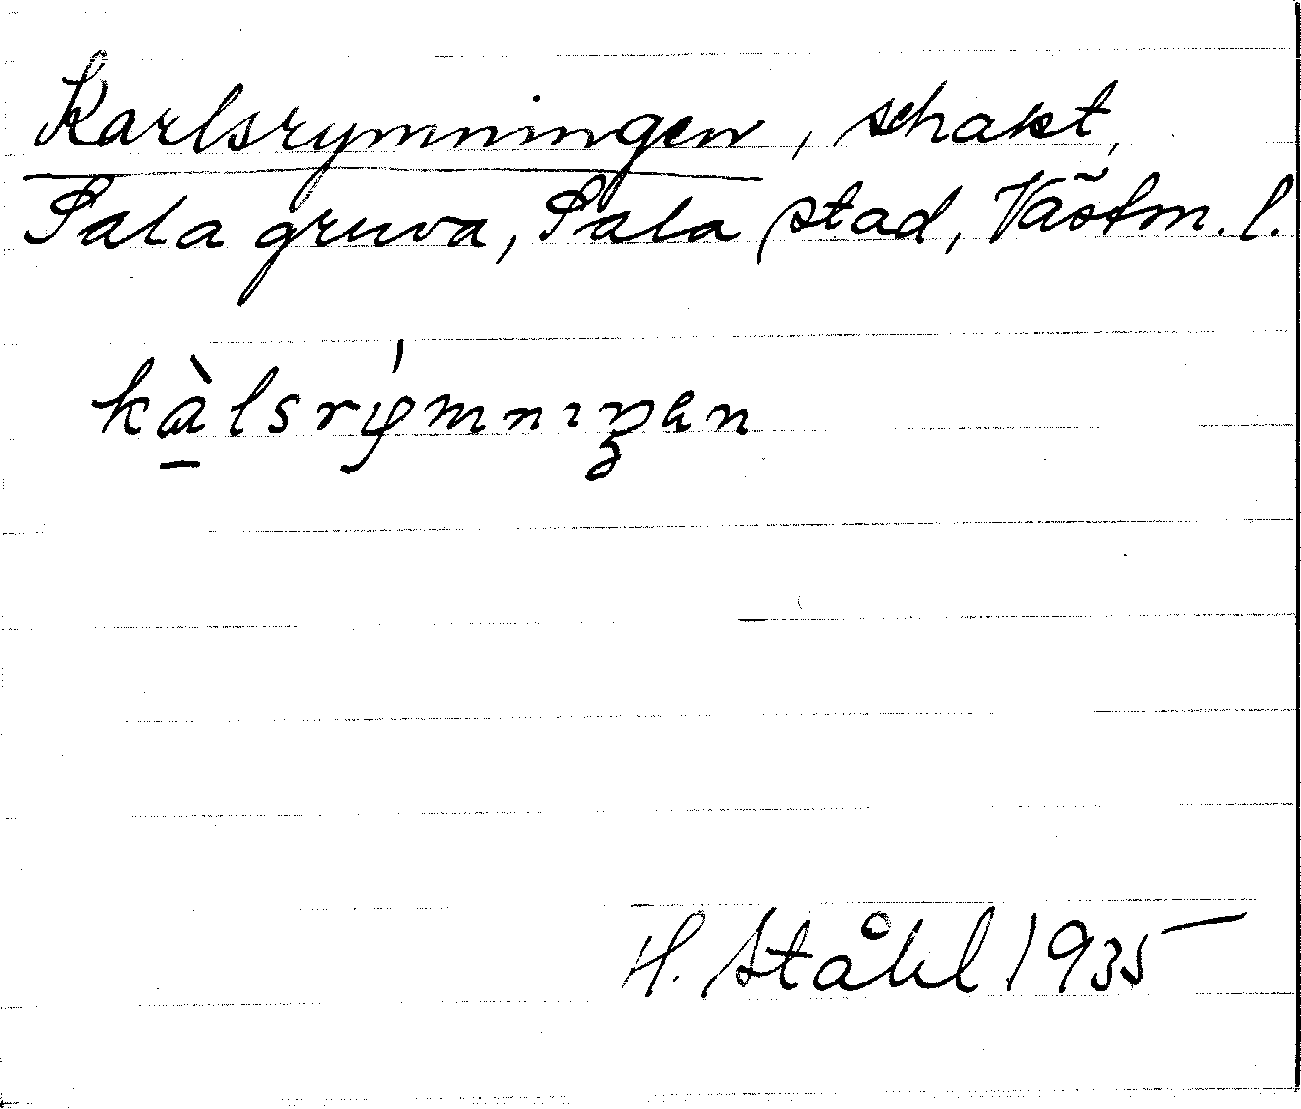 Karlsrymningen, schakt,
Sala gruva, Sala stad, Västm. l.
kàlsrýmnıŋan
H. Ståhl 1935